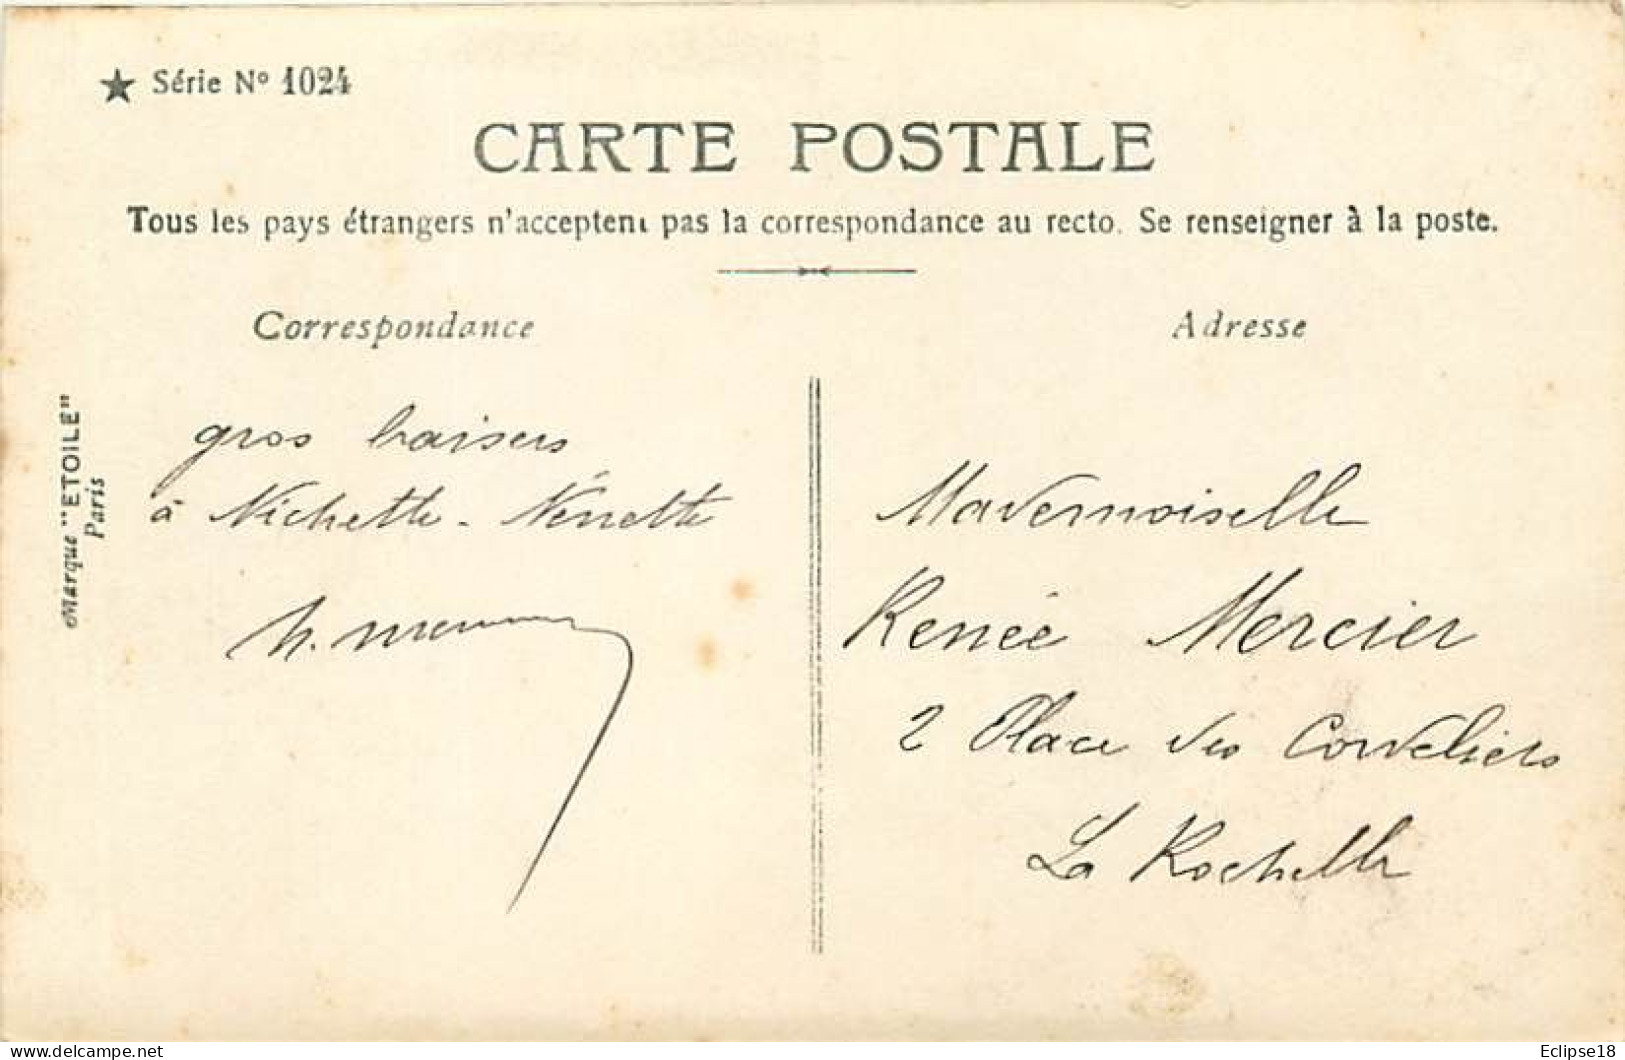 ★ Série Nº 1024
CARTE POSTALE
Tous les pays étrangers n'acceptent pas la correspondance au recto. Se renseigner à la poste.
Correspondance
gros baisers
à Nichette - Nénette
Marque "ETOILE"
Paris
Adresse
Mademoiselle
Renée Mercier
2 Place des Cordeliers
La Rochelle
Eclipse18
www.delcampe.net